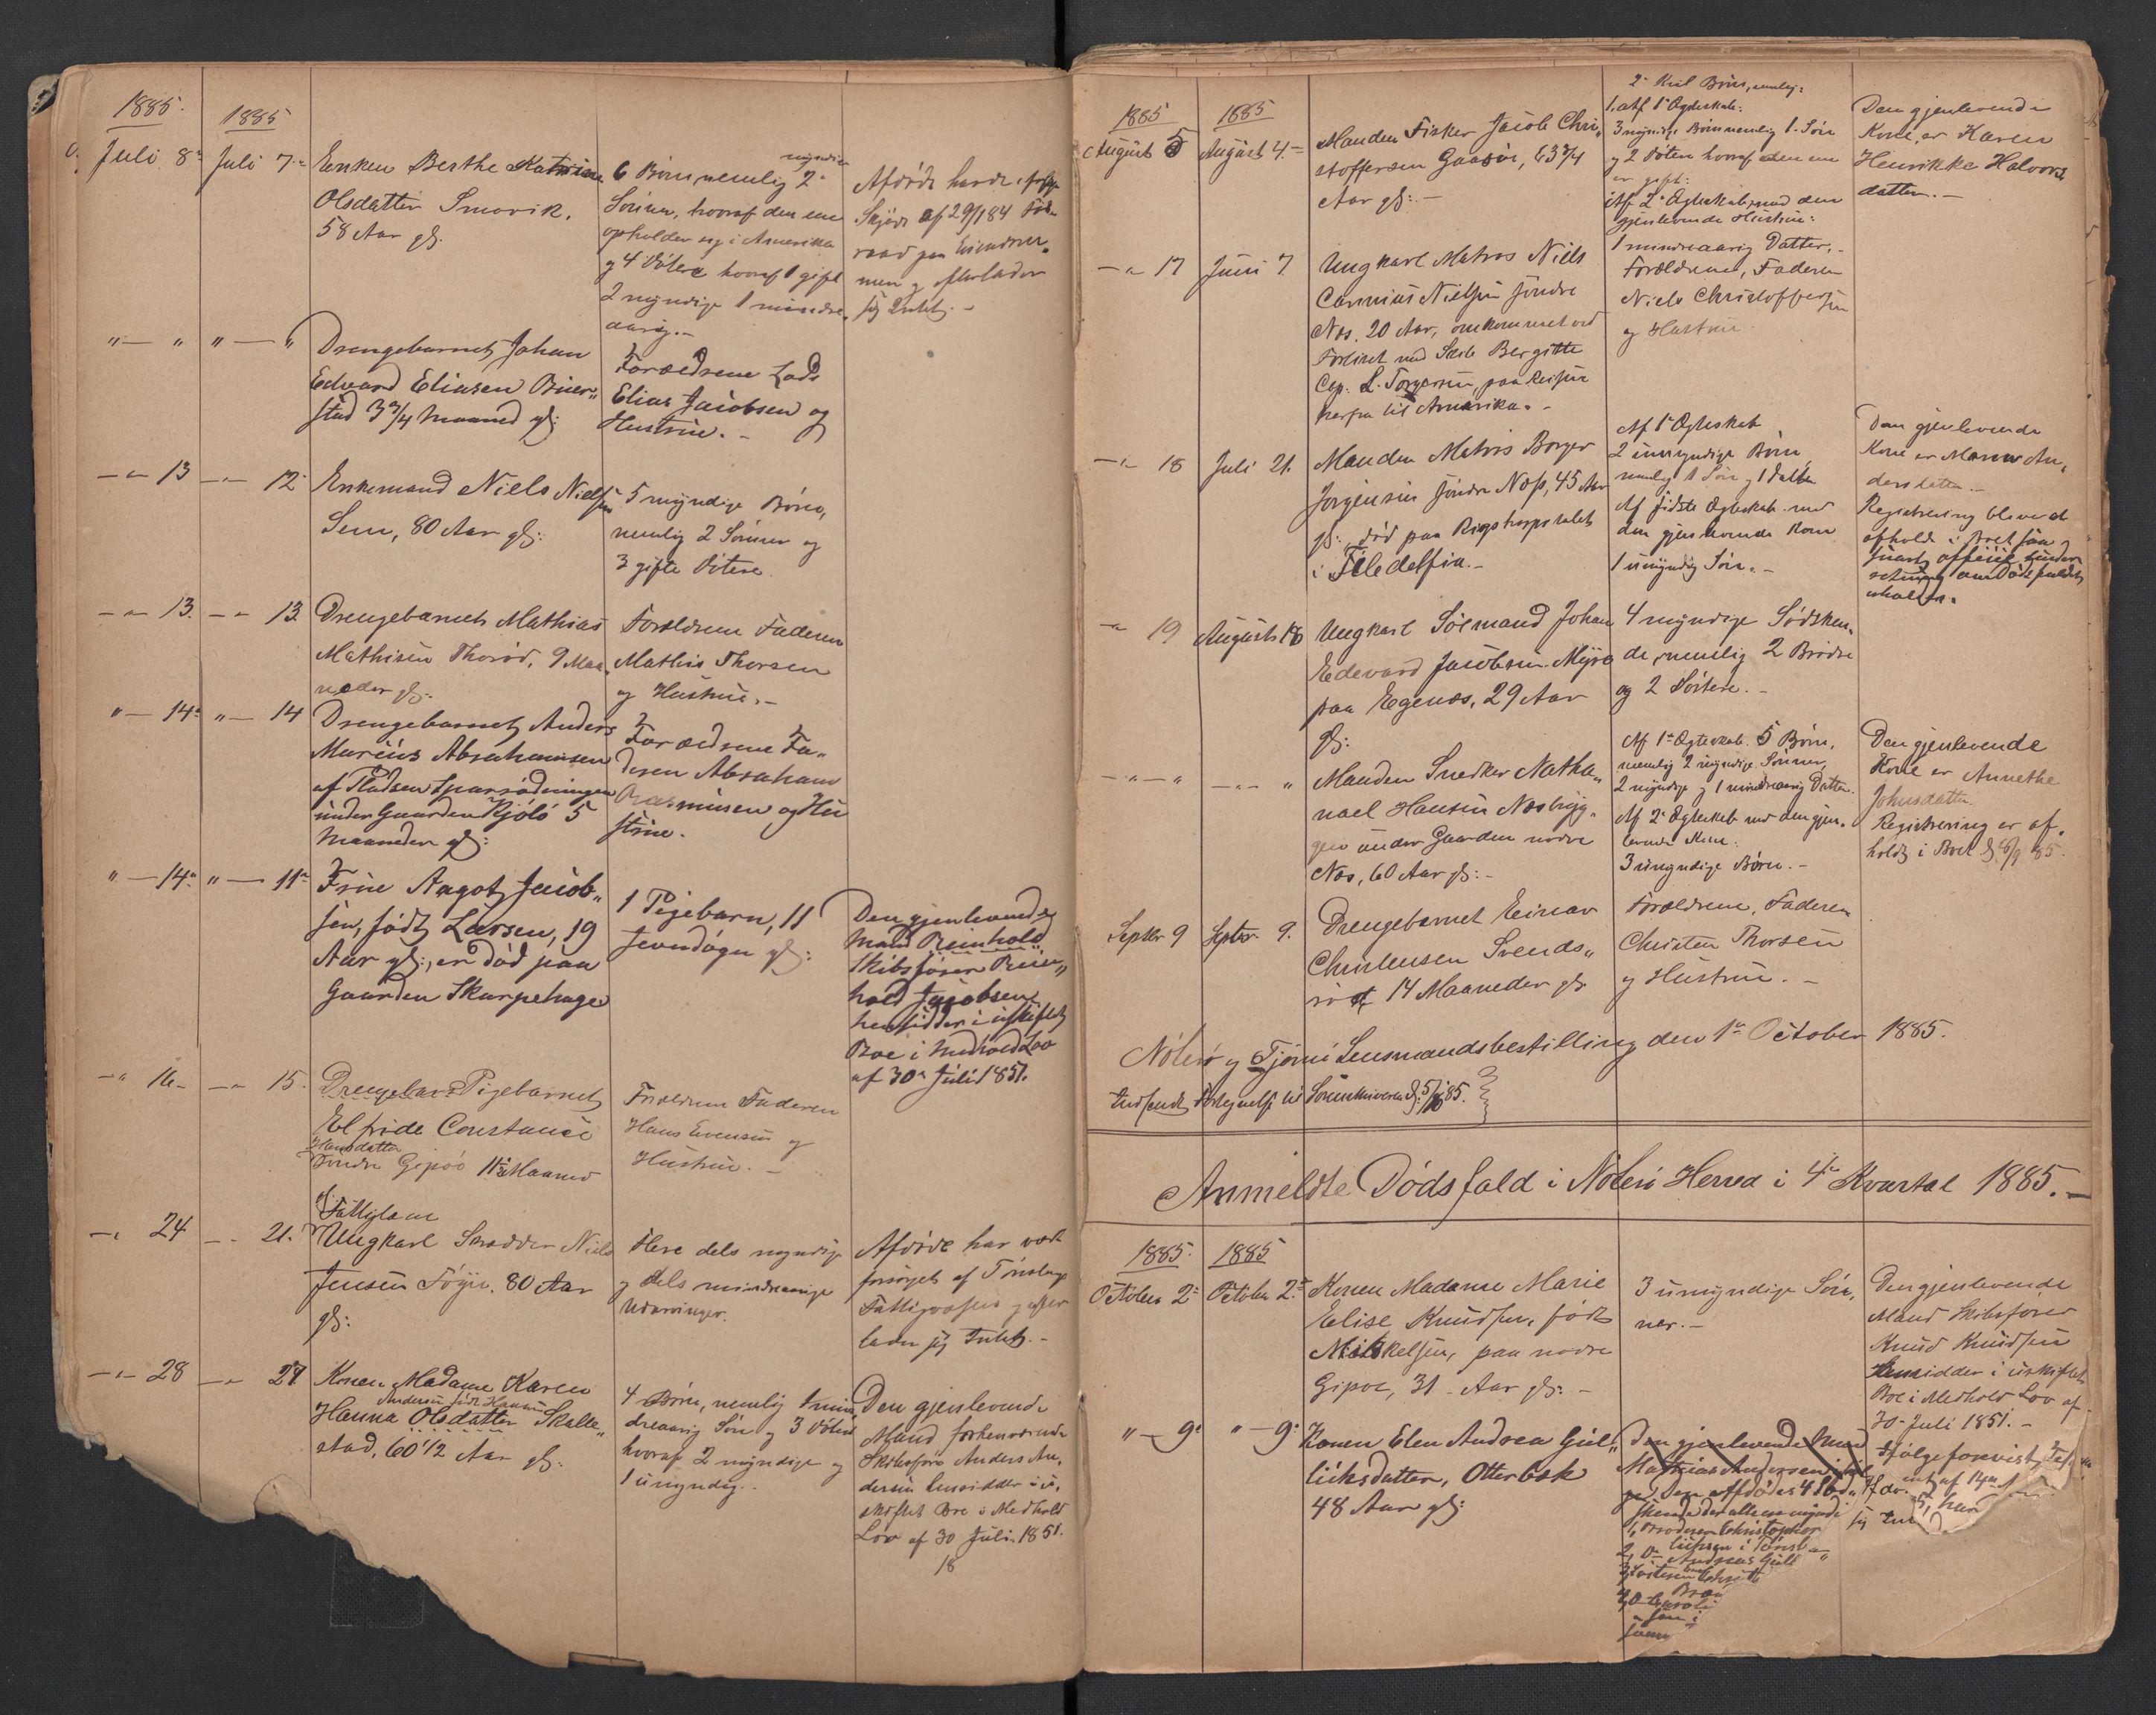 1885. 1885
Juli 8de Juli 7de Enken Berthe Katrine
Olsdatter Smørvik.
58 Aar gl.
6 Børn, nemlig 2 myndige
Sønner, hvoraf den ene
opholder sig i Amerika
og 4 Døtre hvoraf 1 gift
2 myndige 1 mindre-
aarig.-
Afdøde havde ifølge
Skjøde af 29/1 84 Føde-
raad paa Eiendom-
men og efterlader
sig Intet.-
"— " "— " Drengebarnet Johan
Edvard Eliasen Buer-
stad 3 3/4 Maaned gl:
Forældrene Lods
Elias Jacobsen og
Hustrue.-
—"— 13 —"— 12 Enkemand Niels Nielsen
Sem, 80 Aar gl:
5 myndige Børn,
nemlig 2 Sønner og
3 gifte Døtre.
—"— 13. —"— 13 Drengebarnet Mathias
Mathisen Thorød, 9 Maa-
neder gl:
Forældrene Faderen
Mathis Thorsen
og Hustrue.-
"— 14de "— 14 Drengebarnet Anders
Marius Abrahamsen
af Pladsen
under Gaarden Kjøló 5
Maaneder gl:
Forældrene Fa-
deren Abraham
Rasmusen og Hu
strue.
"— 14de "— 11te Frue Aagot Jacob-
sen, født Larsen, 19
Aar gl:, er død paa
Gaarden Skarpehage
1 Pigebarn, 11
Jevndøgn gl:
Den gjenlevende
Mand Reinhold
Skibsfører Rein-
hold Jacobsen
hensidder i uskiftet
Boe i Medhold Lov
af 30te Juli 1851.
—" 16- —" 15. Drengebar Pigebarnet
Elfride Constance
Hansdatter
Søndre Gipøe 11½ Maaned
gl:
Forældrene Faderen
Hans Evensen og
Hustrue.-
Fattiglem
—" 24 — 21. Ungkarl Skrædder Niels
Jensen Føyn. 80 Aar
gl:
Flere dels myndige
og dels mindreaarige
Udarvinger.
Afdøde har været
forsørget af Tønsbergs
Fattigvæsen og efter
lader sig Intet.-
—"— 28 —" 27 Konen Madame Karen
Andersen født Hansen
Hanna Olsdatter Skalle-
stad, 60 1/2 Aar gl:
4 Børn, nemlig 1 min-
dreaarig Søn og 3 Døtre
hvoraf 2 myndige og
1 umyndig..
Den gjenlevende
Mand forhenværende
Skibsfører Anders An-
dersen hensidder i u-
skiftet Boe i Medhold
Lov af 30 Juli 1851.
18
1885 1885
August 5 August 4.- Manden Fisker Jacob Chri-
stoffersen Gaasør, 63 3/4
Aar gl:-
2 Kul Børn, nemlig:
1. af 1te Ægteskab:
3 myndige Børn nemlig 1. Søn
og 2 Døtre hvoraf den ene
er gift:
Af 2det Ægteskab med den
gjenlevende Hustrue:
1 mindreaarig Datter.-
Den gjenlevende
Kone er Karen
Henrikke Halvors-
datter.-
—" 17 Juni 7. Ungkarl Matros Niels
Carinius Nielsen søndre
Næs. 20 Aar, omkommet ved
Forliset med Skib Bergitte
Cap. L. Torgersen, paa Reisen
herfra til Amerika.-
Forældrene, Faderen
Niels Christoffersen
og Hustrue
—" 18 Juli 21. Manden Matros Borger
Jørgensen søndre Næs, 45 Aar
gl:, død paa Rigshospitalet
i Filedelfia.-
Af 1te Ægteskab
2 umyndige Børn
nemlig 1 Søn og 1 Datter
Af sidste Ægteskab med
den gjenlevende Kone
1 umyndig Søn.-
Den gjenlevende
Kone er Maren An-
dersdatter.-
Registrering bliver at
afholde i Boet saa
snart officiel under-
retning om Dødsfaldet
erholdes.
—" 19 August 18 Ungkarl Sømand Johan
Edevard Jacobsen Myre
paa Egenæs, 29 Aar
gl:
4 myndige Sødsken-
de, nemlig 2 Brødre
og 2 Søstere.-
—"—" —"— " Manden Snedker Natha-
nael Hansen Næsbryg-
gen under Gaarden nordre
Næs, 60 Aar gl:-
Af 1te Ægteskab. 5 Børn,
nemlig 2 myndige Sønner,
2 myndige og 1 mindreaarig Datter.
Af 2det Ægteskab med den gjen-
levende Kone:
3 umyndige Børn.-
Den gjenlevende
Kone er Annethe
Johnsdatter.
Registrering er af-
holdt i Boet d: 8/9 85.
Septbr 9 Septbr 9. Drengebarnet Einar
Christensen Svends-
rød 14 Maaneder gl:
Forældrene, Faderen
Christen Thorsen
og Hustrue.-
Nøterø og Tjømø Lensmandsbestilling den 1te October 1885.
Indsendt Fortegnelse til Sorenskriveren d: 5/10 85.
Anmeldte Dødsfald i Nøterø Herred i 4de Kvartal 1885.-
1885. 1885
October 2de October 2de Konen Madame Marie
Elise Knudsen, født
Mikkelsen, paa nordre
Gipøe, 31 Aar gl:-
3 umyndige Søn-
ner.-
Den gjenlevende
Mand Skibsfører
Knud Knudsen
hensidder i uskiftet
Boe i Medhold Lov af
30- Juli 1851.-
"— 9de "— 9de Konen Elen Andrea Gul-
liksdatter, Otterbæk
48 Aar gl:
Den gjenlevende Mand
Mathias Andersen
Den Afdødes 4 Sød-
skende der alle ere myndige
1, Broderen Christopher
i Tønsberg
2, Do Andreas Gull
3, Søsteren
4, Do
Ifølge forevist
af 14